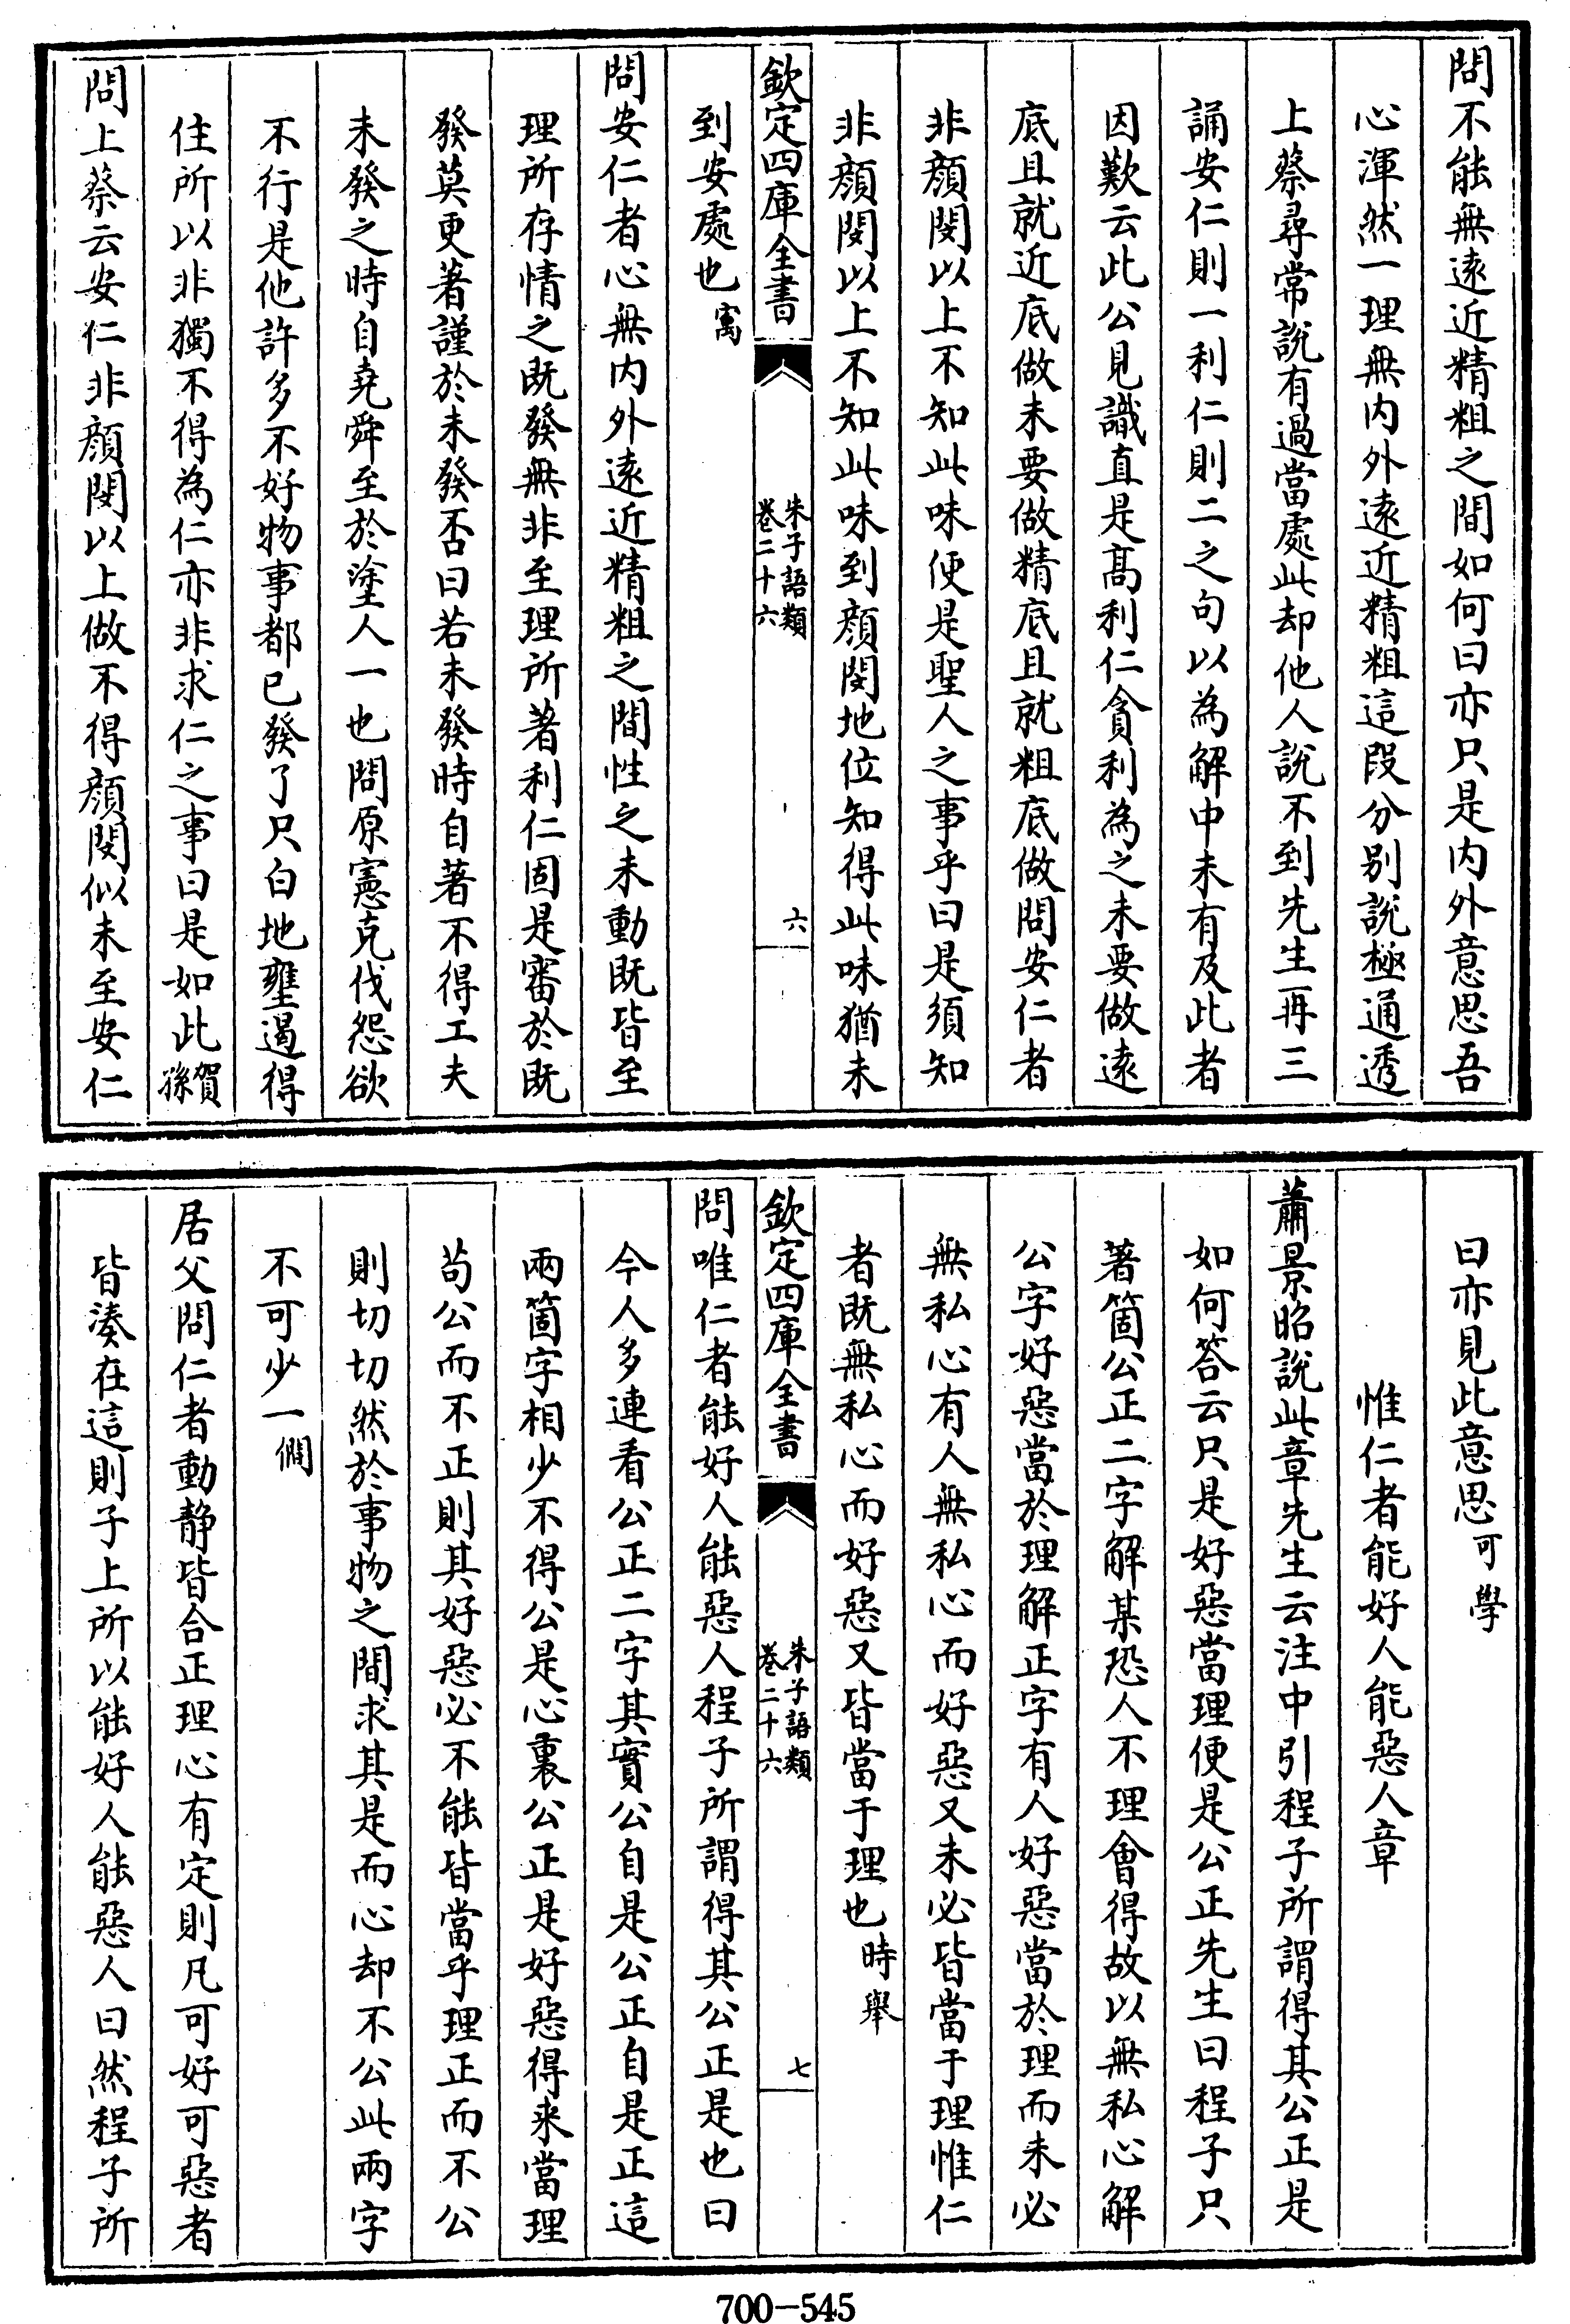 問不能無逺近精粗之間如何曰亦只是内外意思吾
心渾然一理無内外逺近精粗這段分别說極通透
上蔡尋常說有過當處此却他人說不到先生再三
誦安仁則一利仁則二之句以為解中未有及此者
因歎云此公見識直是髙利仁貪利為之未要做逺
底且就近底做未要做精底且就粗底做問安仁者
非顔閔以上不知此味便是聖人之事乎曰是須知
非顔閔以上不知此味到顔閔地位知得此味猶未
欽定四庫全書
朱子語類
卷二十六
六
到安處也㝢
問安仁者心無内外逺近精粗之間性之未動既皆至
理所存情之既發無非至理所著利仁固是審於既
發莫更著謹於未發否曰若未發時自著不得工夫
未發之時自堯舜至於塗人一也問原憲克伐怨欲
不行是他許多不好物事都已發了只白地壅遏得
住所以非獨不得為仁亦非求仁之事曰是如此賀孫
問上蔡云安仁非顔閔以上做不得顔閔似未至安仁
曰亦見此意思可學
惟仁者能好人能惡人章
蕭景昭說此章先生云注中引程子所謂得其公正是
如何答云只是好惡當理便是公正先生曰程子只
著箇公正二字解某恐人不理會得故以無私心解
公字好惡當於理解正字有人好惡當於理而未必
無私心有人無私心而好惡又未必皆當于理惟仁
者既無私心而好惡又皆當于理也時舉
欽定四庫全書
朱子語類
卷二十六
七
問唯仁者能好人能惡人程子所謂得其公正是也曰
今人多連看公正二字其實公自是公正自是正這
兩箇字相少不得公是心裏公正是好惡得來當理
茍公而不正則其好惡必不能皆當乎理正而不公
則切切然於事物之間求其是而心却不公此兩字
不可少一僩
居父問仁者動静皆合正理心有定則凡可好可惡者
皆湊在這則子上所以能好人能惡人曰然程子所
700-545